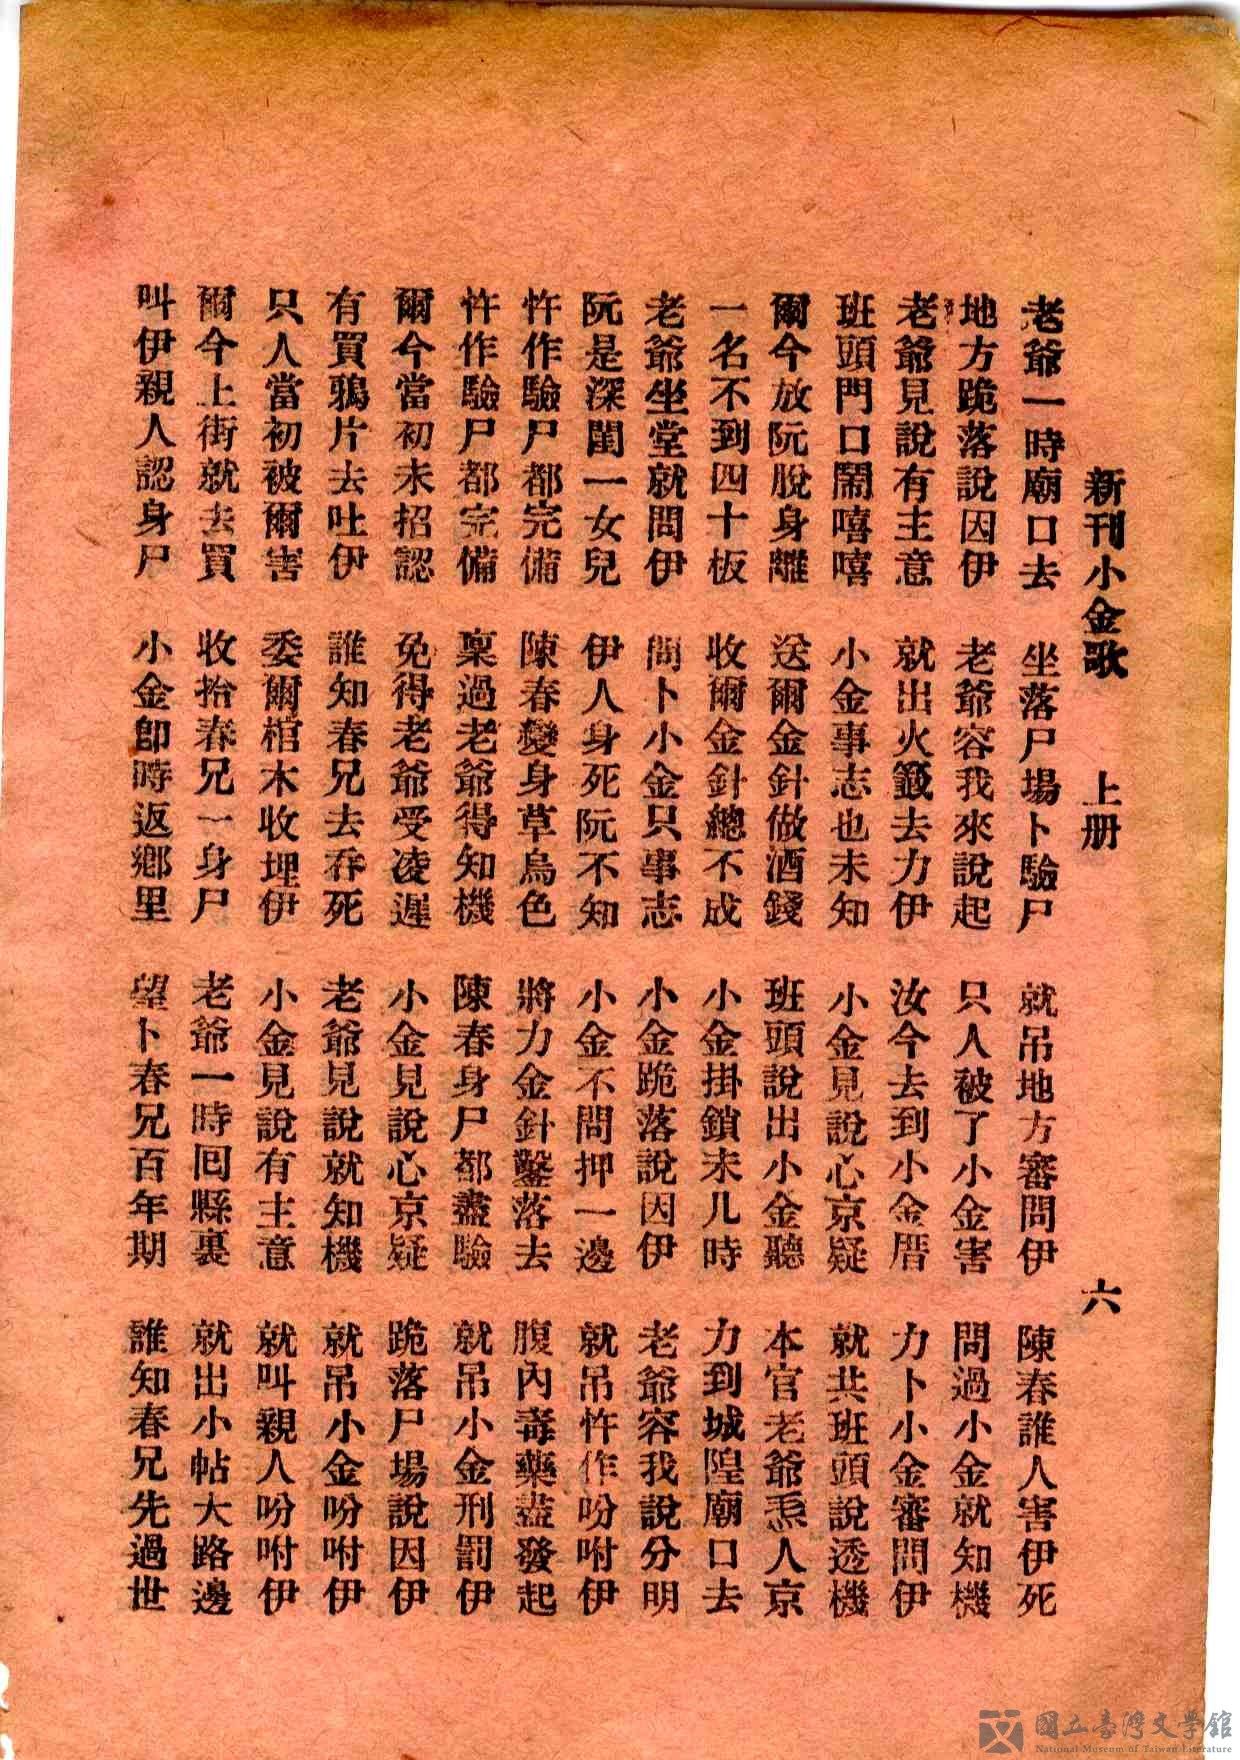 新刊小金歌 上册 六
老爺一時廟口去 坐落尸場卜驗尸 就吊地方審問伊 陳春誰人害伊死
地方跪落說因伊 老爺容我來說起 只人被了小金害 問過小金就知機
老爺見說有主意 就出火籤去力伊 汝今去到小金厝 力卜小金審問伊
班頭門口鬧嘻嘻 小金事志也未知 小金見說心京疑 就共班頭說透機
爾今放阮脫身離 送爾金針做酒錢 班頭說出小金聽 本官老爺𢚓人京
一名不到四十板 收爾金針總不成 小金掛鎖未几時 力到城隍廟口去
老爺坐堂就問伊 問卜小金只事志 小金跪落說因伊 老爺容我說分明
阮是深閨一女兒 伊人身死阮不知 小金不問押一邊 就吊忤作吩咐伊
忤作驗尸都完備 陳春變身草烏色 將力金針鑿落去 腹內毒藥盡發起
忤作驗尸都完備 稟過老爺得知機 陳春身尸都盡驗 就吊小金刑罰伊
爾今當初未招認 免得老爺受凌遲 小金見說心京疑 跪落尸場說因伊
有買鴉片去吐伊 誰知春兄去吞死 老爺見說就知機 就吊小金吩咐伊
只人當初被爾害 委爾棺木收埋伊 小金見說有主意 就叫親人吩咐伊
爾今上街就去買 收拾春兄一身尸 老爺一時回縣裏 就出小帖大路邊
叫伊親人認身尸 小金即時返鄉里 望卜春兄百年期 誰知春兄先過世
國立臺灣文學館
National Museum of Taiwan Literature